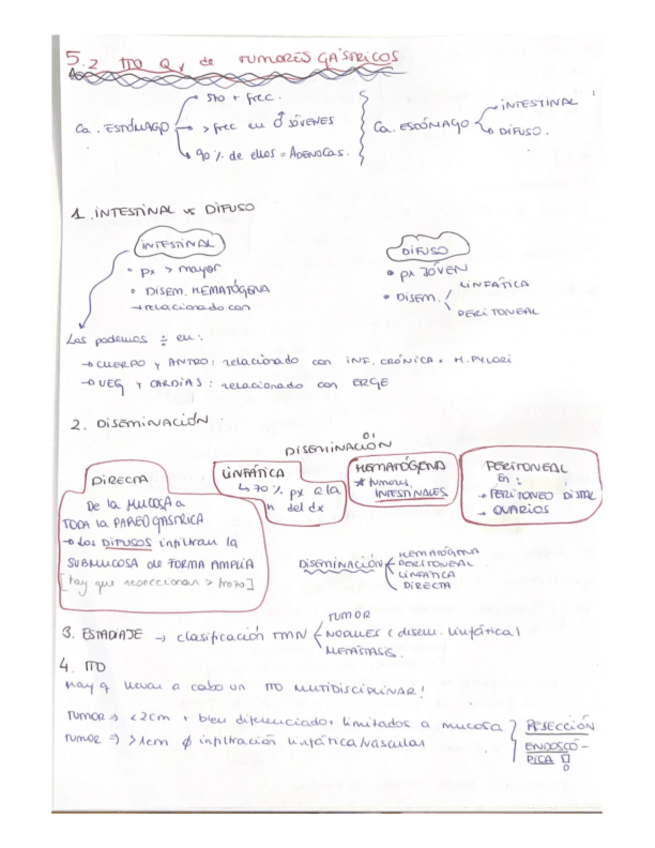 5.2 TTO Qx de TUMORES GÁSTRICOS
Ca. ESTÓMAGO
5to + frec.
> frec en ♂ JÓVENES
90% de ellos = ADENOCAS.
Ca. ESTÓMAGO
INTESTINAL
DIFUSO.
1. INTESTINAL vs DIFUSO
INTESTINAL
• px > mayor
• DISEM. HEMATÓGENA
→ relacionado con
DIFUSO
• px JÓVEN
• DISEM.
LINFÁTICA
PERITONEAL
Los podemos ÷ en:
→ CUERPO y ANTRO: relacionado con INF. CRÓNICA × H. PYLORI
→ UEG y CARDIAS: relacionado con ERGE
2. DISEMINACIÓN
DISEMINACIÓN
DIRECTA
De la MUCOSA a
TODA la PARED GÁSTRICA
→ Los DIFUSOS infiltran la
SUBMUCOSA de FORMA AMPLIA
[hay que reseccionar > trozo]
LINFÁTICA
↳ 70% px a la
h del dx
HEMATÓGENA
* tumores
INTESTINALES
PERITONEAL
en:
→ PERITONEO DISTAL
→ OVARIOS
DISEMINACIÓN
HEMATÓGENA
PERITONEAL
LINFÁTICA
DIRECTA
3. ESTADIAJE → clasificación TMN
TUMOR
NODULES (disem. linfática)
METÁSTASIS.
4. TTO
Hay q llevar a cabo un TTO MULTIDISCIPLINAR!
TUMOR → <2cm + bien diferenciado + limitados a mucosa
TUMOR ⇒ >1cm ∅ infiltración linfática/vascular
RESECCIÓN
ENDOSCÓ-
PICA !